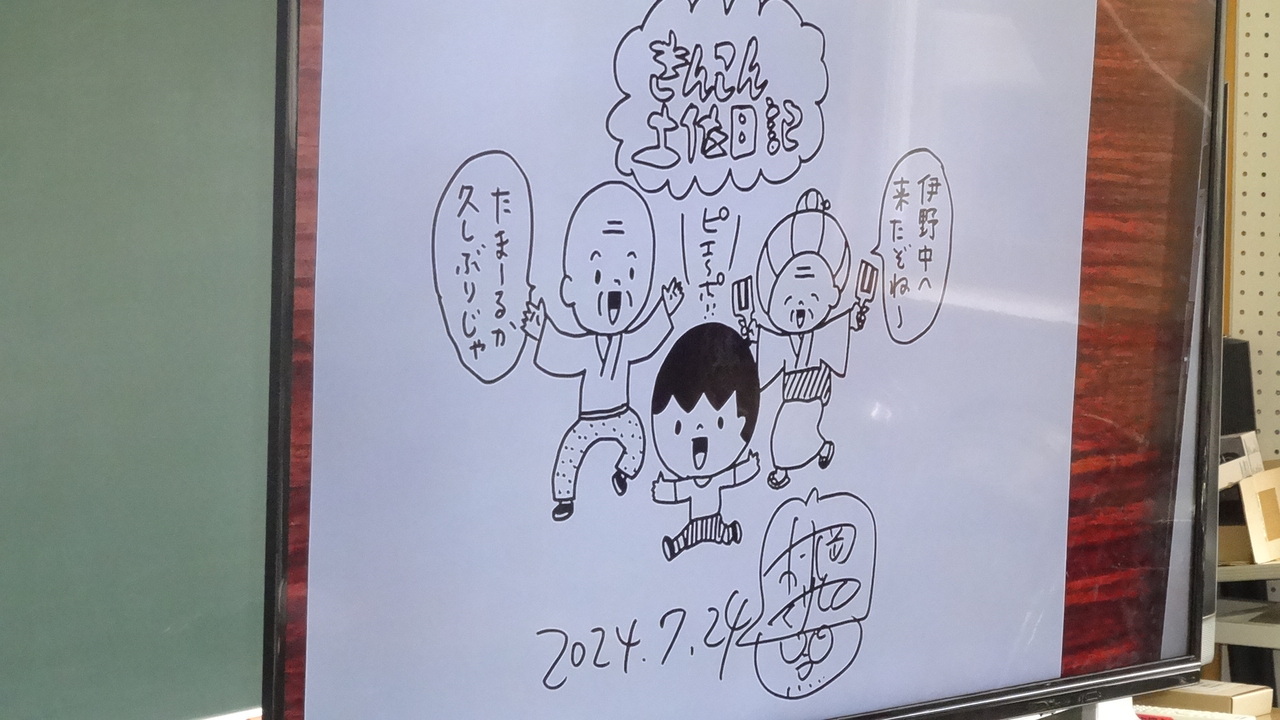 きんこん
土佐日記
たまーるか
久しぶりじゃ
ピエ〜ポ‥
伊野中へ
来たぞね〜
2024.7.24